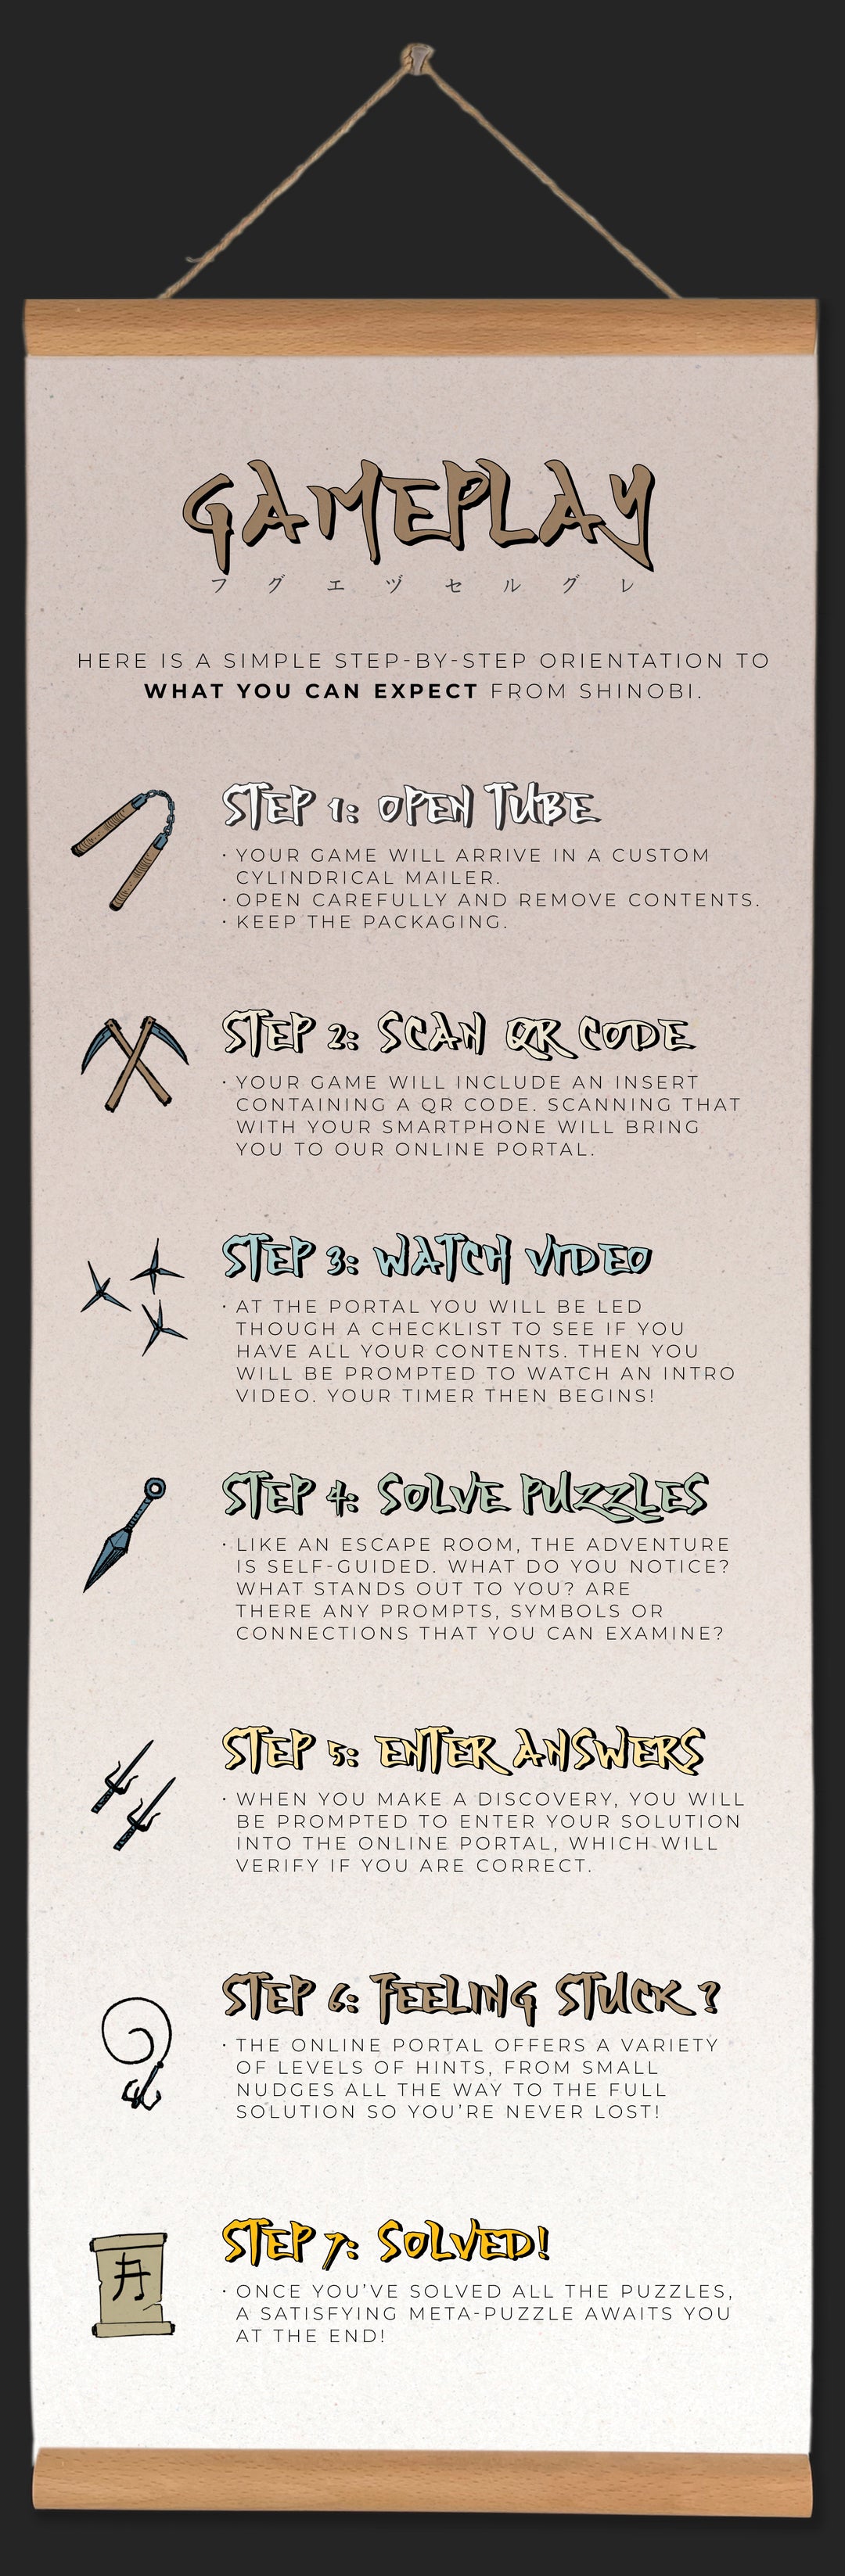 GAMEPLAY
フグエヅセルグレ
HERE IS A SIMPLE STEP-BY-STEP ORIENTATION TO
WHAT YOU CAN EXPECT FROM SHINOBI.
STEP 1: OPEN TUBE
· YOUR GAME WILL ARRIVE IN A CUSTOM
CYLINDRICAL MAILER.
· OPEN CAREFULLY AND REMOVE CONTENTS.
· KEEP THE PACKAGING.
STEP 2: SCAN QR CODE
· YOUR GAME WILL INCLUDE AN INSERT
CONTAINING A QR CODE. SCANNING THAT
WITH YOUR SMARTPHONE WILL BRING
YOU TO OUR ONLINE PORTAL.
STEP 3: WATCH VIDEO
· AT THE PORTAL YOU WILL BE LED
THOUGH A CHECKLIST TO SEE IF YOU
HAVE ALL YOUR CONTENTS. THEN YOU
WILL BE PROMPTED TO WATCH AN INTRO
VIDEO. YOUR TIMER THEN BEGINS!
STEP 4: SOLVE PUZZLES
· LIKE AN ESCAPE ROOM, THE ADVENTURE
IS SELF-GUIDED. WHAT DO YOU NOTICE?
WHAT STANDS OUT TO YOU? ARE
THERE ANY PROMPTS, SYMBOLS OR
CONNECTIONS THAT YOU CAN EXAMINE?
STEP 5: ENTER ANSWERS
· WHEN YOU MAKE A DISCOVERY, YOU WILL
BE PROMPTED TO ENTER YOUR SOLUTION
INTO THE ONLINE PORTAL, WHICH WILL
VERIFY IF YOU ARE CORRECT.
STEP 6: FEELING STUCK?
· THE ONLINE PORTAL OFFERS A VARIETY
OF LEVELS OF HINTS, FROM SMALL
NUDGES ALL THE WAY TO THE FULL
SOLUTION SO YOU'RE NEVER LOST!
STEP 7: SOLVED!
· ONCE YOU'VE SOLVED ALL THE PUZZLES,
A SATISFYING META-PUZZLE AWAITS YOU
AT THE END!